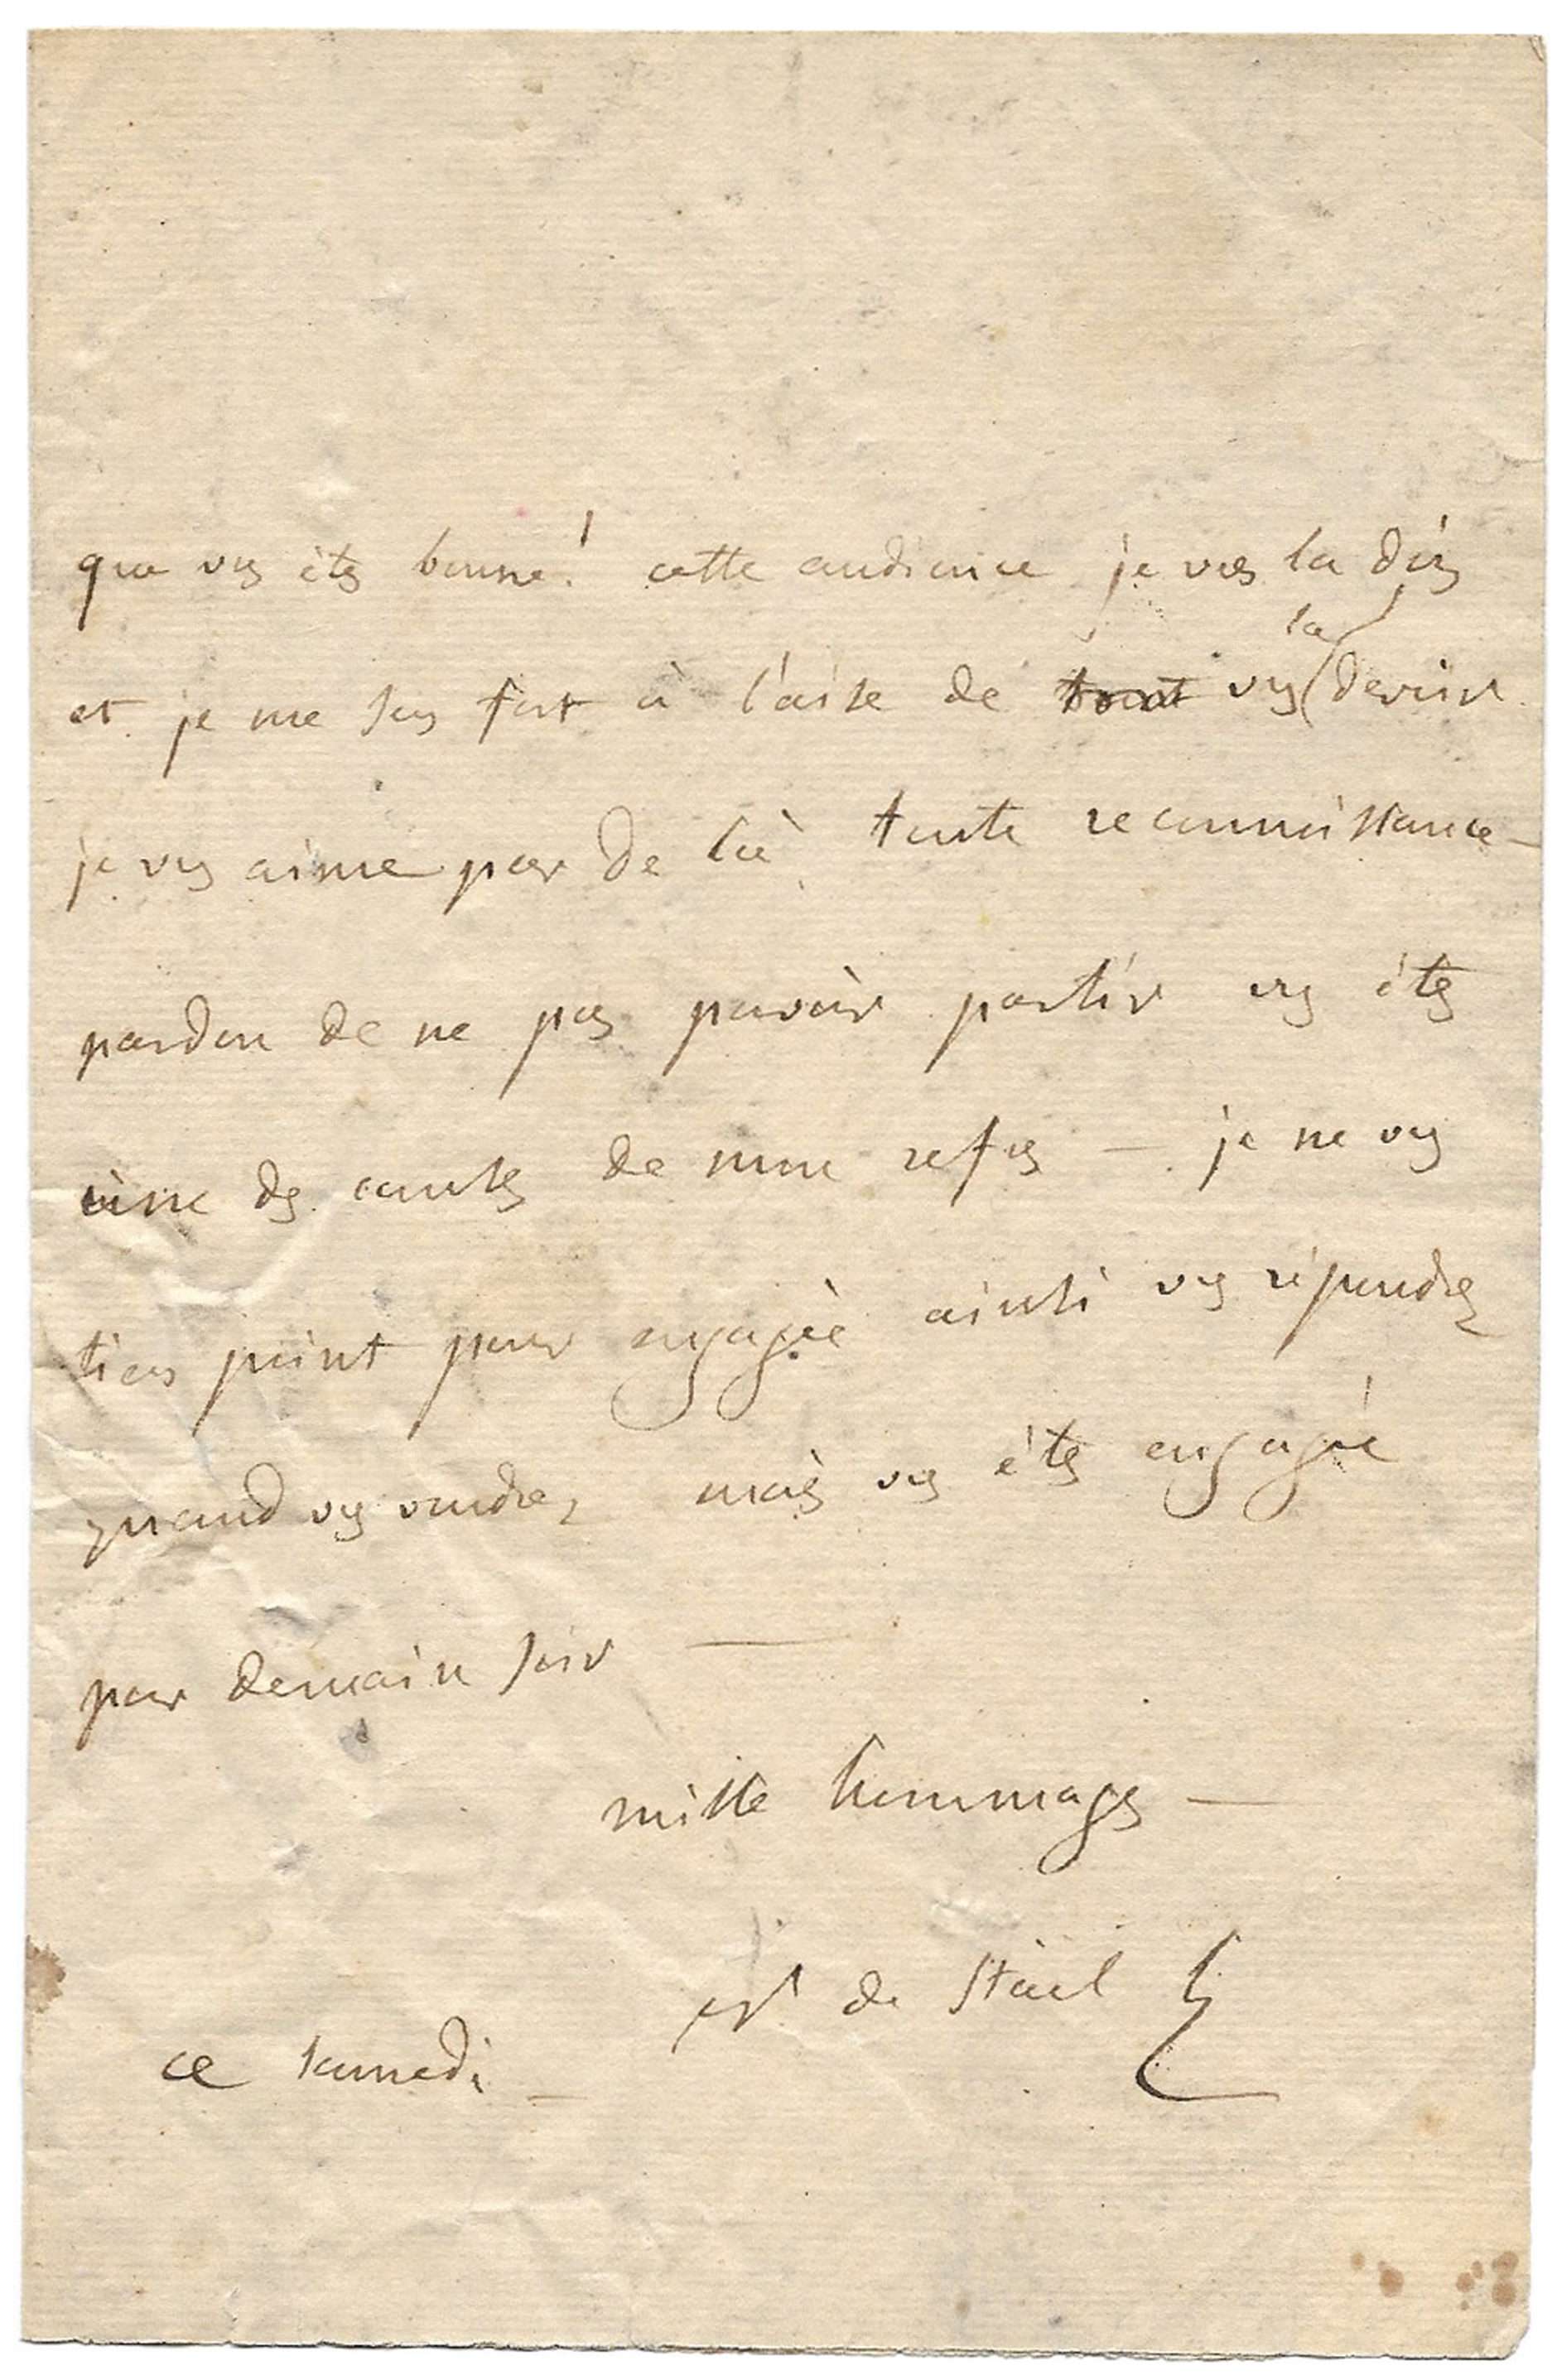 que vs êts bonne! cette audience je vos la dois
et je me sens fort à l'aise de tout vs la devoir
je vs aime par de là toute reconnaissance —
pardon de ne pas pouvoir partir vs êts
une ds causes de mon refus — je ne vs
tiens point pour engagée ainsi vs répondrez
quand vs voudrez mais vs êts engagée
pour demain soir —
mille hommages —
de Stael
ce samedi —